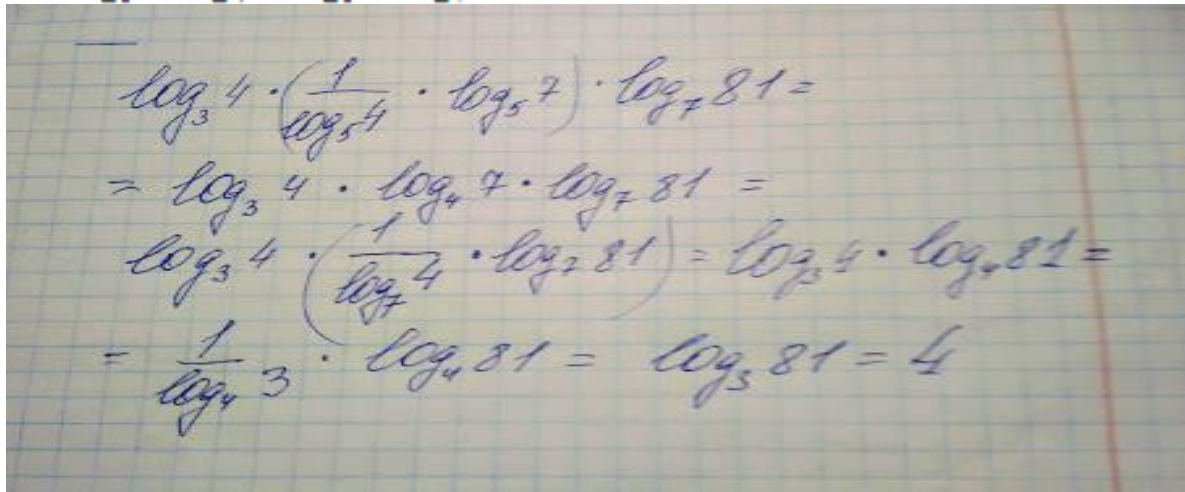 log₃4 · (1/log₅4 · log₅7) · log₇81 =
= log₃4 · log₄7 · log₇81 =
log₃4 · (1/log₇4 · log₇81) = log₃4 · log₄81 =
= 1/log₄3 · log₄81 = log₃81 = 4